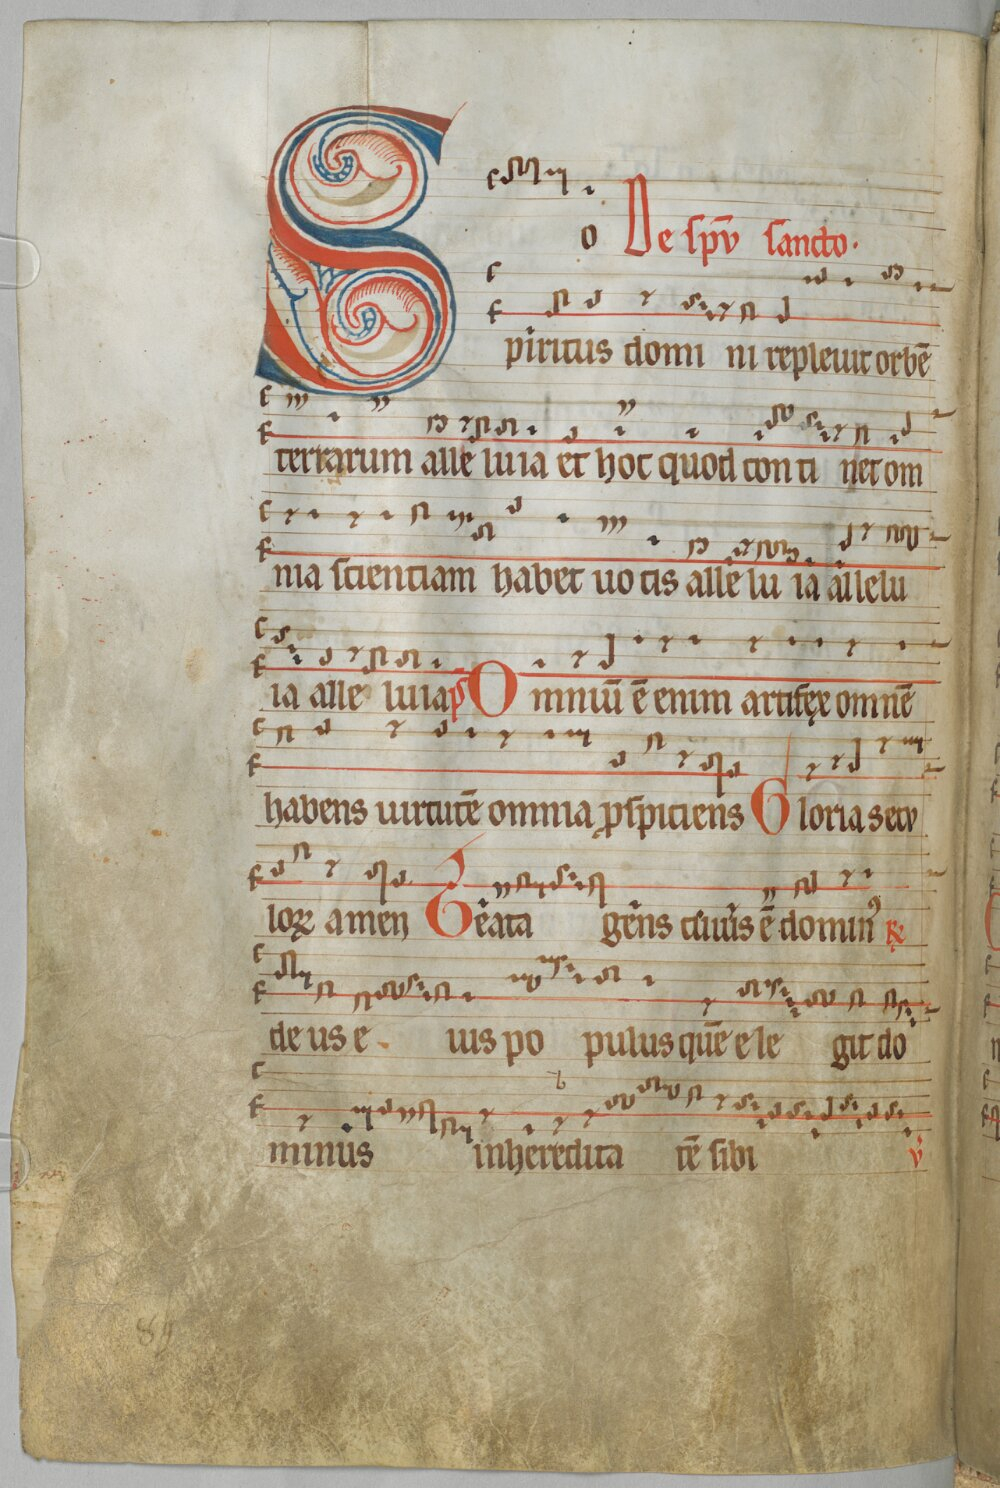 o De spū sancto.
S piritus domi ni repleuit orbē
terrarum alle luia et hoc quod conti net om
nia scientiam habet uocis alle lu ia allelu
ia alle luia ps Omniū ē enim artifex omnē
habens uirtutē omnia ꝑspiciens Gloria secu
loꝝ amen Beata gens cuius ē dominꝰ ℟
deus e ius po pulus quē ele git do
minus inheredita tē sibi v̄
89